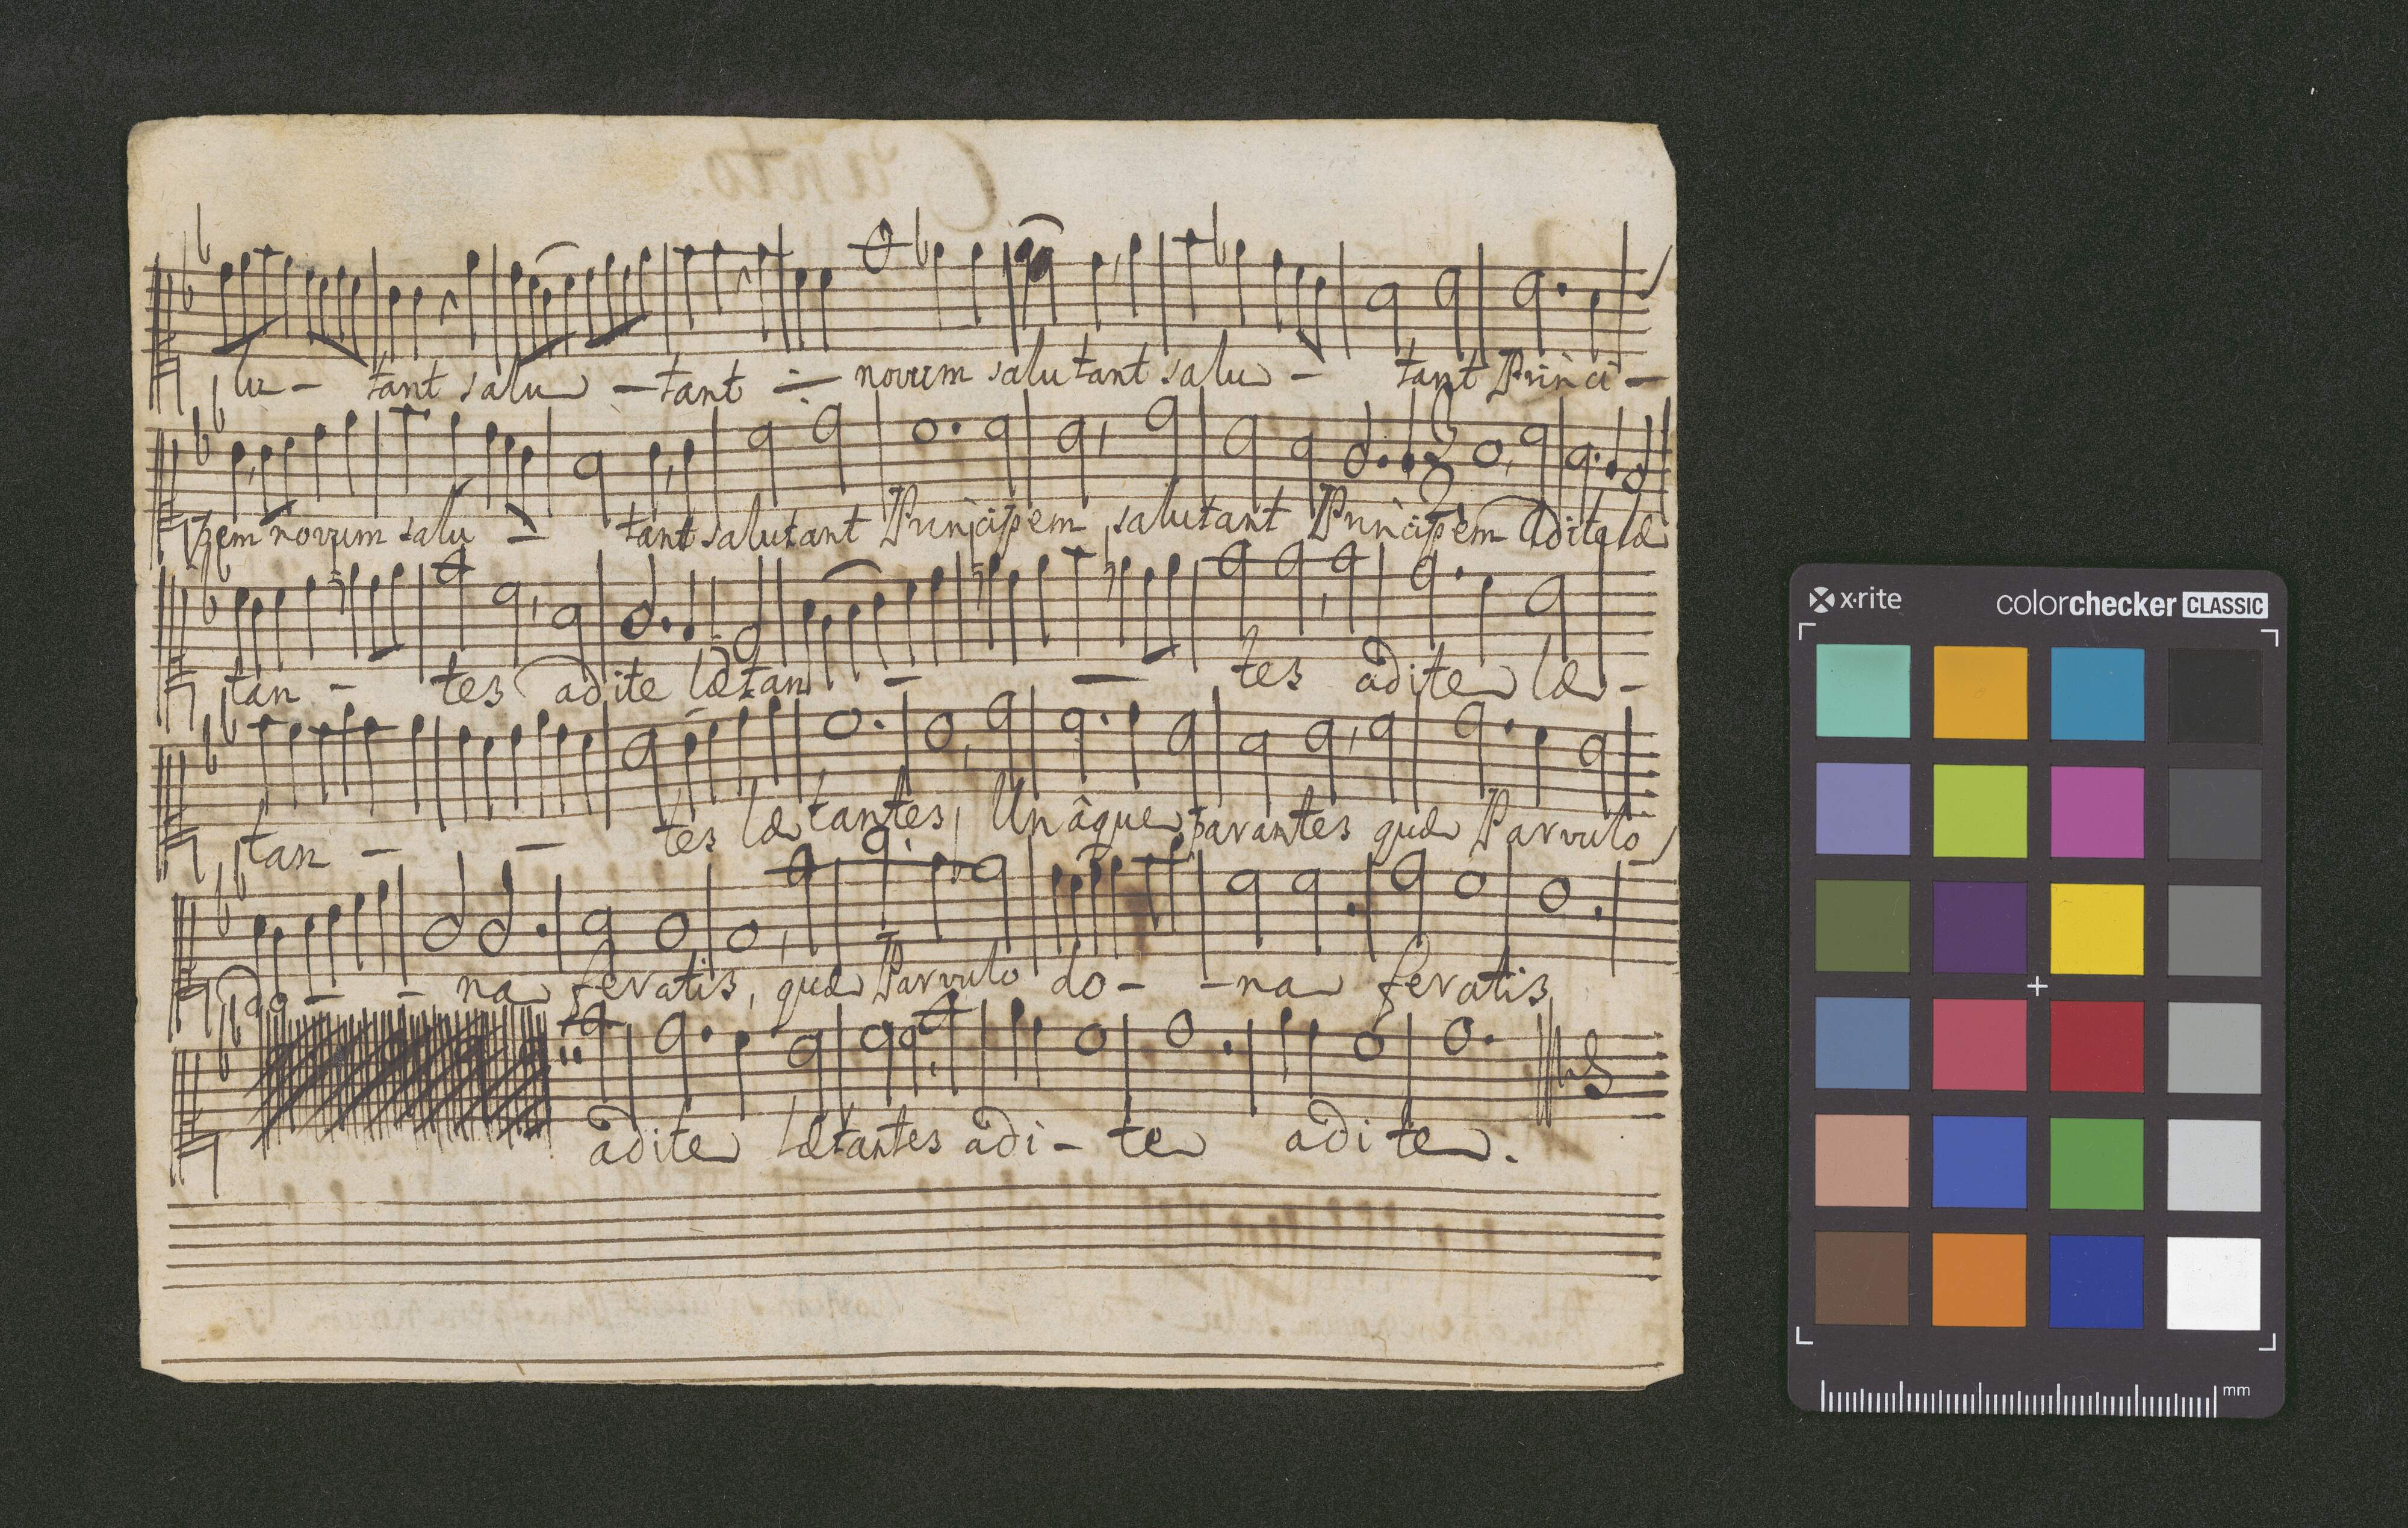 lu - tant salu - tant -:- novum salutant salu - tant Princi -
pem novum salu - tant salutant Principem, salutant Principem Adite læ
tan - tes adite lætan - - tes adite læ -
tan - - tes lætantes, Unàque parantes quæ Parvulo
do - - na feratis, quæ Parvulo do - - na feratis,
adite lætantes adi - te adite.
x·rite
colorchecker CLASSIC
mm